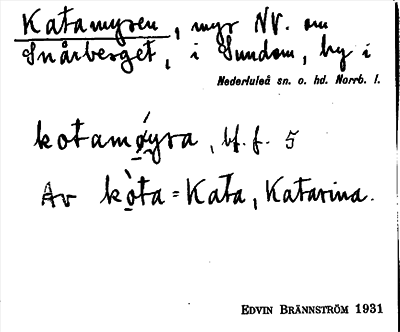 Katamyren, myr NV. om
Snårberget, i Sundom, by i
Nederluleå sn. o. hd. Norrb. l.
kotamǫ́yra, bf. f. 5
Av kǫ̀ta = Kata, Katarina.
EDVIN BRÄNNSTRÖM 1931